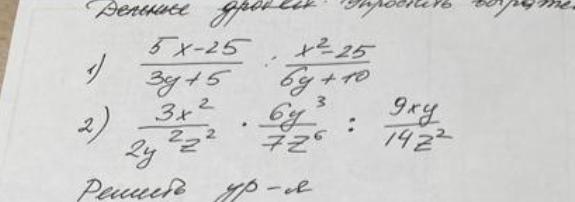 Деление дробей. Упростить выраже
1) (5x-25)/(3y+5) : (x²-25)/(6y+10)
2) (3x²)/(2y²z²) · (6y³)/(7z⁶) : (9xy)/(14z²)
Решить ур-я